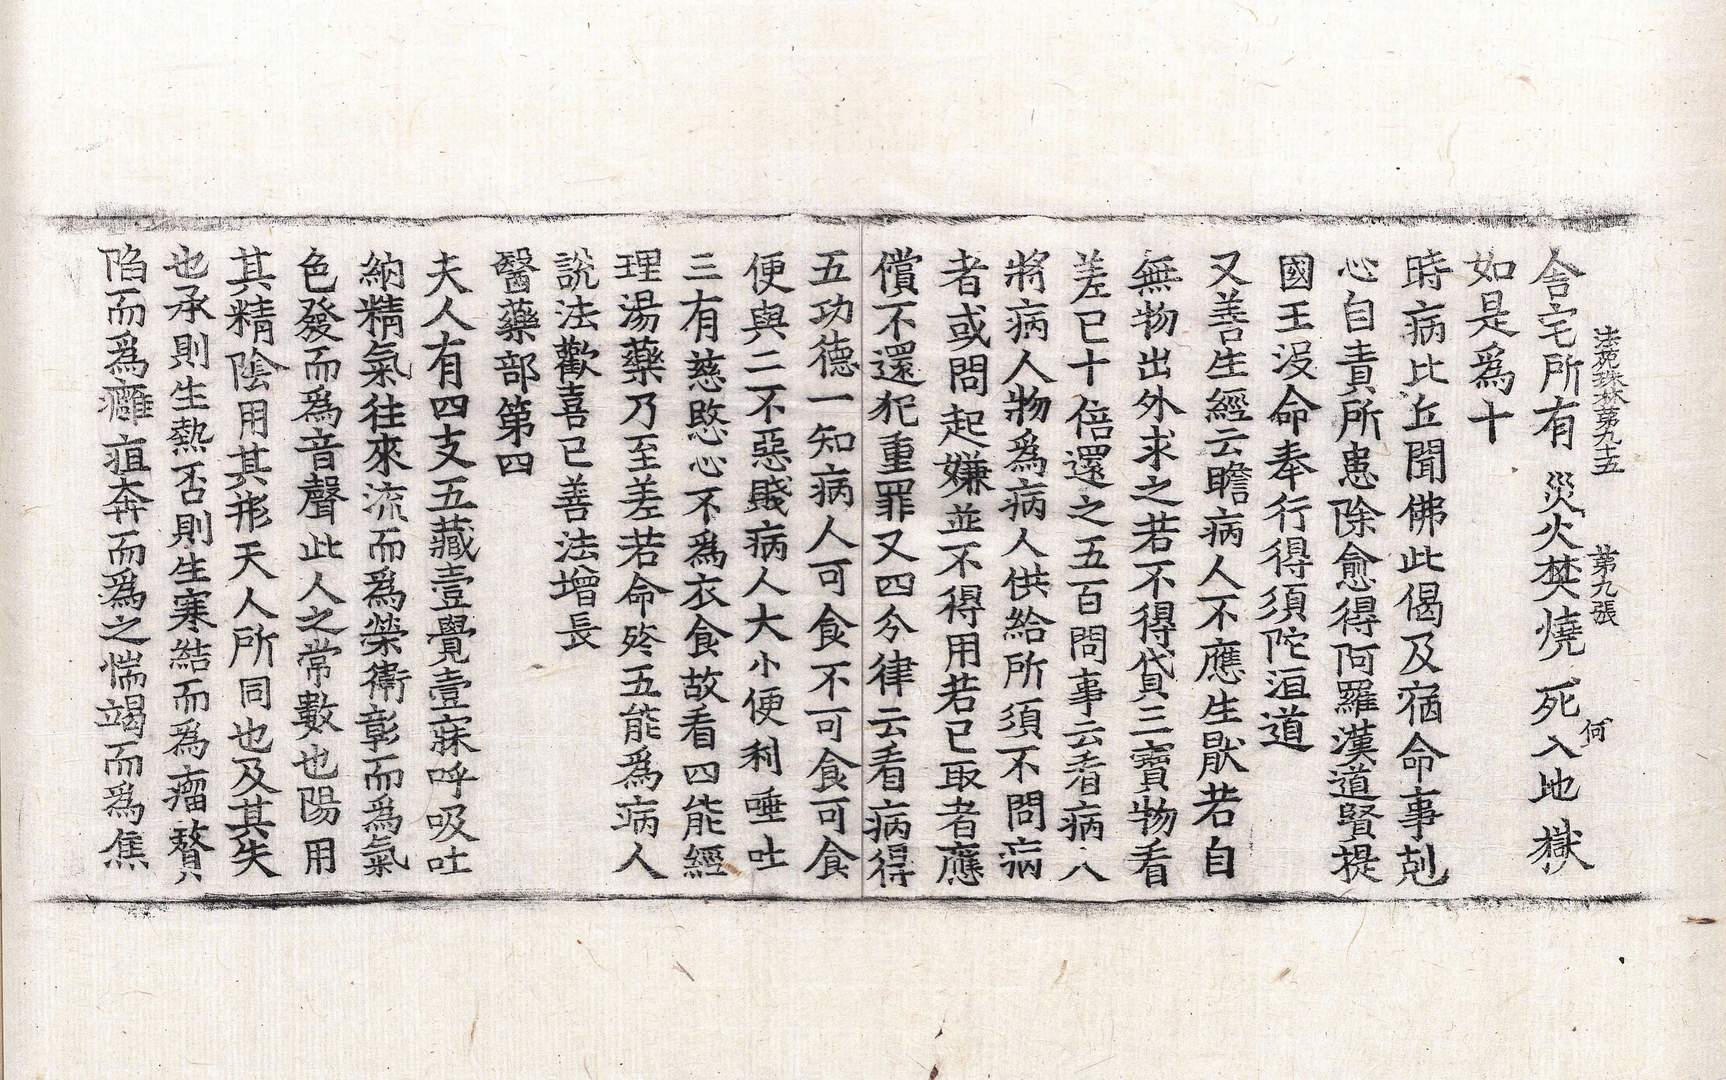 法苑珠林第九十五 第九張 何
舎宅所有災火焚燒死入地獄
如是爲十
時病比丘聞佛此偈及宿命事剋
心自責所患除愈得阿羅漢道賢提
國王沒命奉行得須陀洹道
又善生經云瞻病人不應生猒若自
無物出外求之若不得貸三寶物看
差已十倍還之五百問事云看病人
將病人物爲病人供給所須不問病
者或問起嫌並不得用若已取者應
償不還犯重罪又四分律云看病得
五功德一知病人可食不可食可食
便與二不惡賤病人大小便利唾吐
三有慈愍心不爲衣食故看四能經
理湯藥乃至差若命終五能爲病人
說法歡喜已善法增長
醫藥部第四
夫人有四支五藏壹覺壹寐呼吸吐
納精氣往來流而爲榮衞彰而爲氣
色發而爲音聲此人之常數也陽用
其精陰用其形天人所同也及其失
也承則生熱否則生寒結而爲瘤贅
陷而爲癰疽奔而爲之惴竭而爲焦